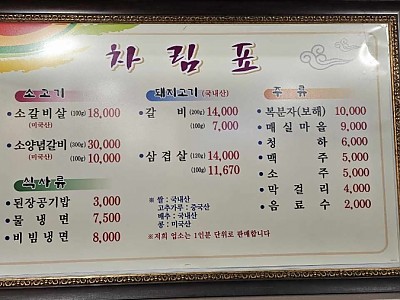 차림표
소고기
• 소갈비살 (100g) 18,000
(미국산)
• 소양념갈비 (300g) 30,000
(미국산) (100g) 10,000
식사류
• 된장공기밥 3,000
• 물냉면 7,500
• 비빔냉면 8,000
돼지고기 (국내산)
• 갈비 (200g) 14,000
(100g) 7,000
• 삼겹살 (120g) 14,000
(100g) 11,670
※ 쌀 : 국내산
고추가루 : 중국산
배추 : 국내산
콩 : 미국산
※저희 업소는 1인분 단위로 판매합니다
주류
• 복분자(보해) 10,000
• 매실마을 9,000
• 청하 6,000
• 맥주 5,000
• 소주 5,000
• 막걸리 4,000
• 음료수 2,000